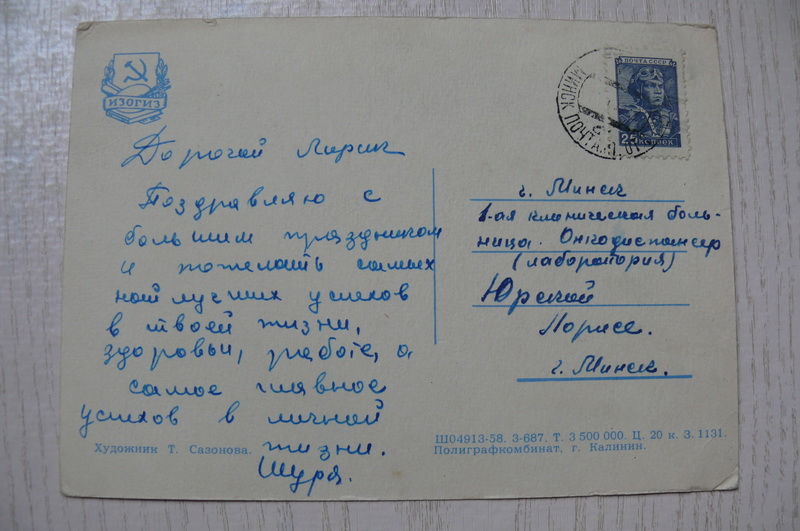 ИЗОГИЗ
ПОЧТА СССР
25 КОПЕЕК
МИНСК ПОЧТА
Дорогой Ларик
Поздравляю с
большим праздником
и пожелать самых
наилучших успехов
в твоей жизни,
здоровьи, работе, а
самое главное
успехов в личной
жизни.
Шура.
г. Минск
1-ая клиническая боль-
ница. Онкодиспансер
(лаборатория)
Юрской
Ларисе.
г. Минск.
Художник Т. Сазонова.
Ш04913-58. З-687. Т. 3 500 000. Ц. 20 к. З. 1131.
Полиграфкомбинат, г. Калинин.